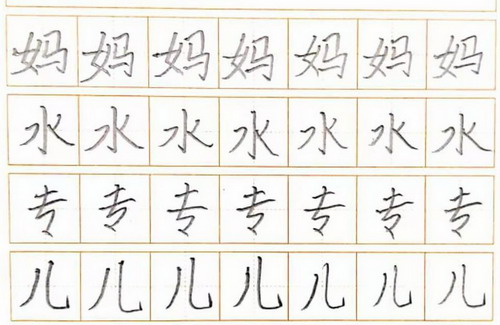 妈妈妈妈妈妈妈
水水水水水水水
专专专专专专专
儿儿儿儿儿儿儿